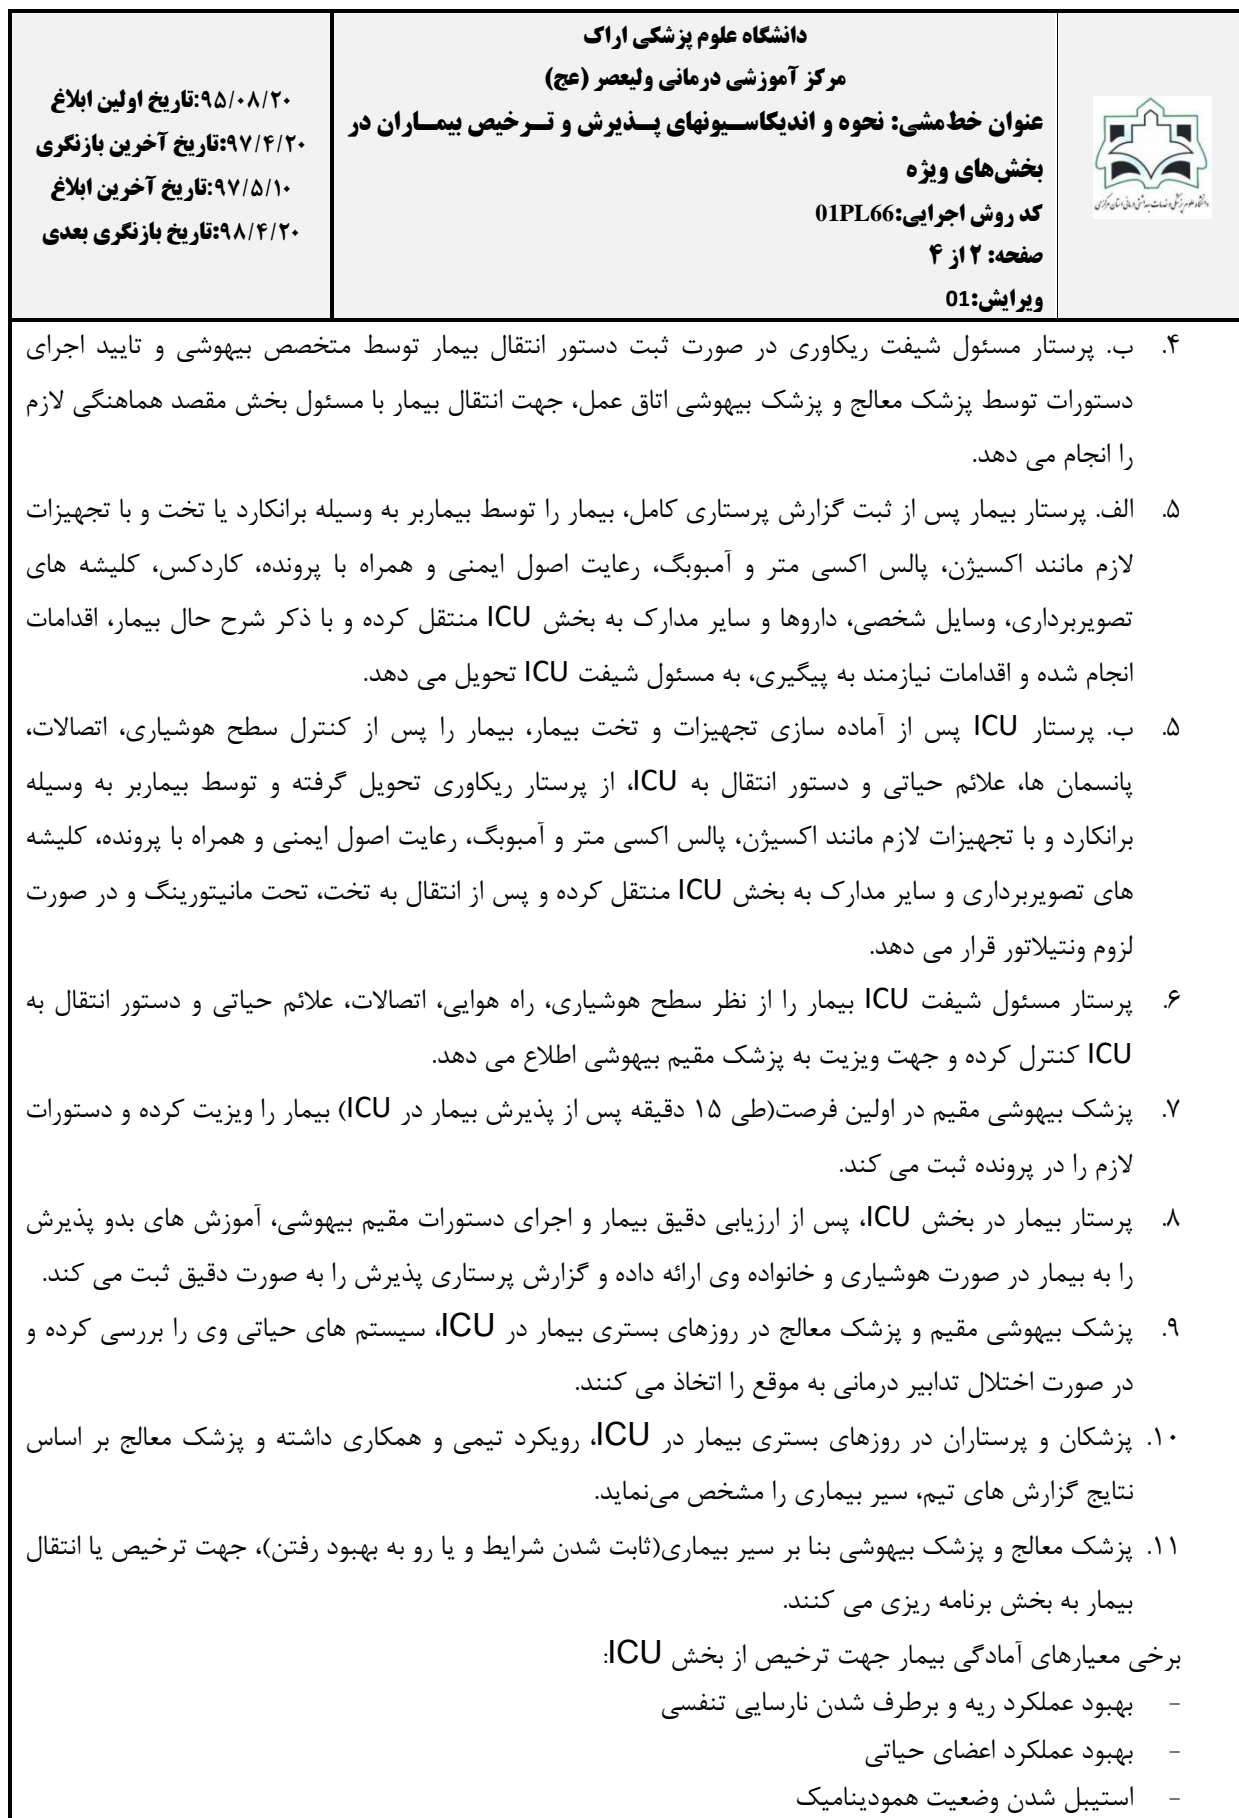 دانشگاه علوم پزشکی اراک
مرکز آموزشی درمانی ولیعصر (عج)
عنوان خط‌مشی: نحوه و اندیکاســیونهای پــذیرش و تــرخیص بیمــاران در
بخش‌های ویژه
کد روش اجرایی:01PL66
صفحه: ۲ از ۴
ویرایش:01
۹۵/۰۸/۲۰:تاریخ اولین ابلاغ
۹۷/۴/۲۰:تاریخ آخرین بازنگری
۹۷/۵/۱۰:تاریخ آخرین ابلاغ
۹۸/۴/۲۰:تاریخ بازنگری بعدی
۴. ب. پرستار مسئول شیفت ریکاوری در صورت ثبت دستور انتقال بیمار توسط متخصص بیهوشی و تایید اجرای
دستورات توسط پزشک معالج و پزشک بیهوشی اتاق عمل، جهت انتقال بیمار با مسئول بخش مقصد هماهنگی لازم
را انجام می دهد.
۵. الف. پرستار بیمار پس از ثبت گزارش پرستاری کامل، بیمار را توسط بیماربر به وسیله برانکارد یا تخت و با تجهیزات
لازم مانند اکسیژن، پالس اکسی متر و آمبوبگ، رعایت اصول ایمنی و همراه با پرونده، کاردکس، کلیشه های
تصویربرداری، وسایل شخصی، داروها و سایر مدارک به بخش ICU منتقل کرده و با ذکر شرح حال بیمار، اقدامات
انجام شده و اقدامات نیازمند به پیگیری، به مسئول شیفت ICU تحویل می دهد.
۵. ب. پرستار ICU پس از آماده سازی تجهیزات و تخت بیمار، بیمار را پس از کنترل سطح هوشیاری، اتصالات،
پانسمان ها، علائم حیاتی و دستور انتقال به ICU، از پرستار ریکاوری تحویل گرفته و توسط بیماربر به وسیله
برانکارد و با تجهیزات لازم مانند اکسیژن، پالس اکسی متر و آمبوبگ، رعایت اصول ایمنی و همراه با پرونده، کلیشه
های تصویربرداری و سایر مدارک به بخش ICU منتقل کرده و پس از انتقال به تخت، تحت مانیتورینگ و در صورت
لزوم ونتیلاتور قرار می دهد.
۶. پرستار مسئول شیفت ICU بیمار را از نظر سطح هوشیاری، راه هوایی، اتصالات، علائم حیاتی و دستور انتقال به
ICU کنترل کرده و جهت ویزیت به پزشک مقیم بیهوشی اطلاع می دهد.
۷. پزشک بیهوشی مقیم در اولین فرصت(طی ۱۵ دقیقه پس از پذیرش بیمار در ICU) بیمار را ویزیت کرده و دستورات
لازم را در پرونده ثبت می کند.
۸. پرستار بیمار در بخش ICU، پس از ارزیابی دقیق بیمار و اجرای دستورات مقیم بیهوشی، آموزش های بدو پذیرش
را به بیمار در صورت هوشیاری و خانواده وی ارائه داده و گزارش پرستاری پذیرش را به صورت دقیق ثبت می کند.
۹. پزشک بیهوشی مقیم و پزشک معالج در روزهای بستری بیمار در ICU، سیستم های حیاتی وی را بررسی کرده و
در صورت اختلال تدابیر درمانی به موقع را اتخاذ می کنند.
۱۰. پزشکان و پرستاران در روزهای بستری بیمار در ICU، رویکرد تیمی و همکاری داشته و پزشک معالج بر اساس
نتایج گزارش های تیم، سیر بیماری را مشخص می‌نماید.
۱۱. پزشک معالج و پزشک بیهوشی بنا بر سیر بیماری(ثابت شدن شرایط و یا رو به بهبود رفتن)، جهت ترخیص یا انتقال
بیمار به بخش برنامه ریزی می کنند.
برخی معیارهای آمادگی بیمار جهت ترخیص از بخش ICU:
- بهبود عملکرد ریه و برطرف شدن نارسایی تنفسی
- بهبود عملکرد اعضای حیاتی
- استیبل شدن وضعیت همودینامیک